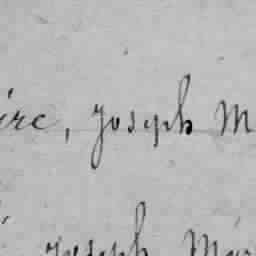 ire, Joseph M
Joseph Mar